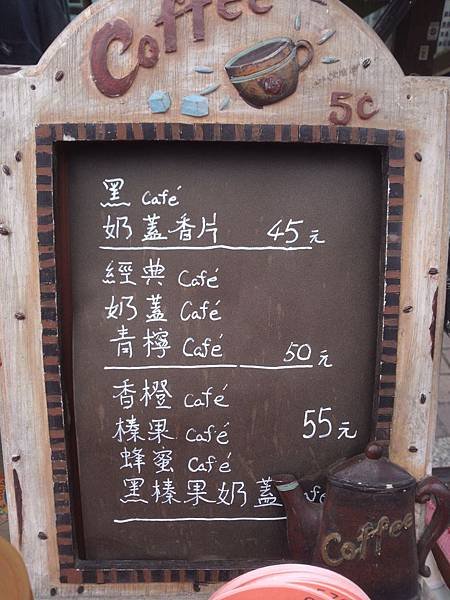 Coffee
5¢
黑 Café
奶蓋香片 45元
經典 Café
奶蓋 Café
青檸 Café 50元
香橙 Café
榛果 Café 55元
蜂蜜 Café
黑榛果奶蓋 Café
Coffee